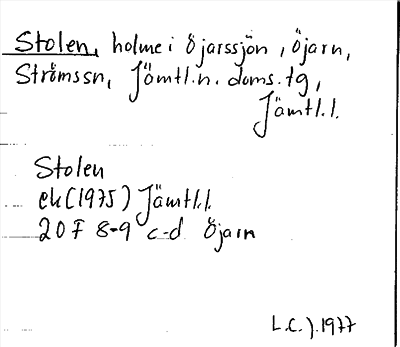 Stolen, holme i Öjarssjön, Öjarn,
Strömssn, Jämtl.n. doms.tg,
Jämtl.l.
Stolen
ek (1975) Jämtl.l.
20 F 8-9 c-d Öjarn
L.C.J. 1977